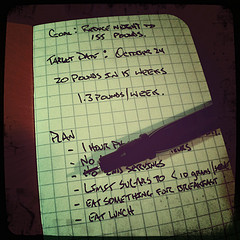 GOAL: REDUCE WEIGHT TO
155 POUNDS.
TARGET DATE: OCTOBER 24
20 POUNDS IN 15 WEEKS
1.3 POUNDS/WEEK.
PLAN
- 1 HOUR
- NO
- NO 2ND SERVINGS
- LIMIT SUGARS TO < 10 GRAM/
- EAT SOMETHING FOR BREAKFAST
- EAT LUNCH